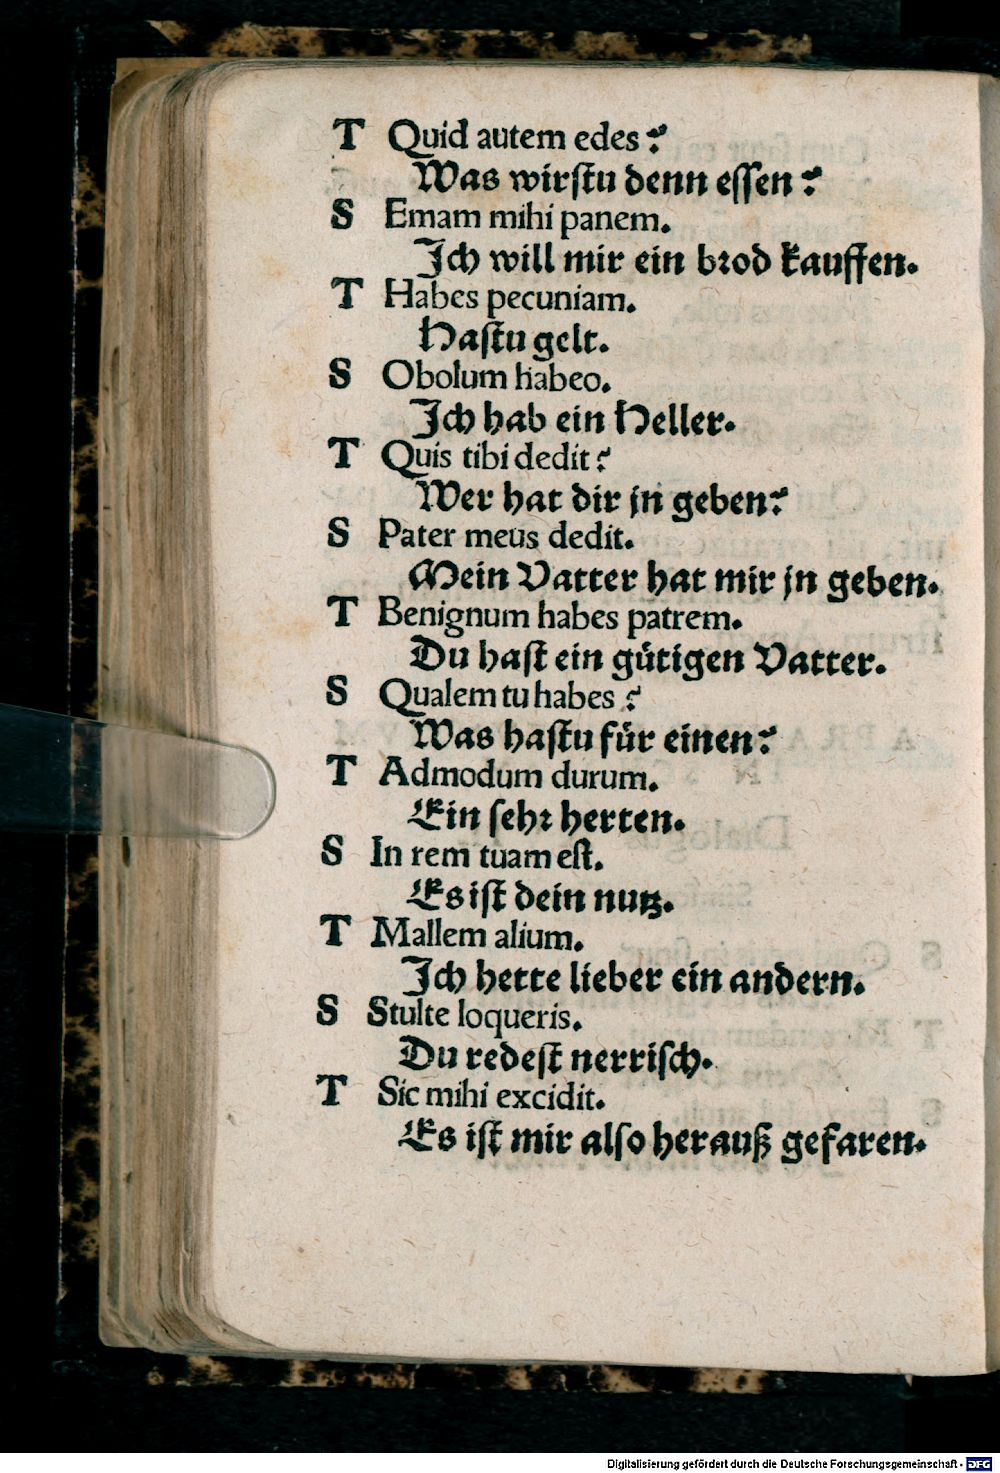 T Quid autem edes?
Was wirstu denn essen?
S Emam mihi panem.
Ich will mir ein brod kauffen.
T Habes pecuniam.
Hastu gelt.
S Obolum habeo.
Ich hab ein Heller.
T Quis tibi dedit?
Wer hat dir jn geben?
S Pater meus dedit.
Mein Vatter hat mir jn geben.
T Benignum habes patrem.
Du hast ein gütigen Vatter.
S Qualem tu habes?
Was hastu für einen?
T Admodum durum.
Ein sehr herten.
S In rem tuam est.
Es ist dein nutz.
T Mallem alium.
Ich hette lieber ein andern.
S Stulte loqueris.
Du redest nerrisch.
T Sic mihi excidit.
Es ist mir also herauß gefaren.
Digitalisierung gefördert durch die Deutsche Forschungsgemeinschaft - DFG